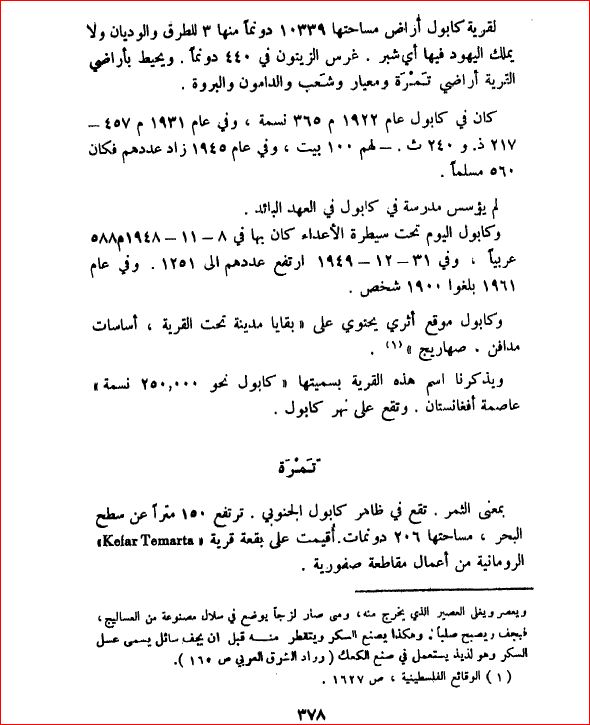 لقرية كابول أراض مساحتها ١٠٣٣٩ دونماً منها ٣ للطرق والوديان ولا
يملك اليهود فيها أي شبر . غرس الزيتون في ٤٤٠ دونماً . ويحيط بأراضي
القرية أراضي تَمْرَة ومعيار وشَعب والدامون والبروة .
كان في كابول عام ١٩٢٢ م ٣٦٥ نسمة ، وفي عام ١٩٣١ م ٤٥٧ —
٢١٧ ذ. و ٢٤٠ ث . — لهم ١٠٠ بيت ، وفي عام ١٩٤٥ زاد عددهم فكان
٥٦٠ مسلماً .
لم يؤسس مدرسة في كابول في العهد البائد .
وكابول اليوم تحت سيطرة الأعداء كان بها في ٨ – ١١ – ١٩٤٨م ٥٨٨
عربياً ، وفي ٣١ – ١٢ – ١٩٤٩ ارتفع عددهم الى ١٢٥١ . وفي عام
١٩٦١ بلغوا ١٩٠٠ شخص .
وكابول موقع أثري يحتوي على « بقايا مدينة تحت القرية ، أساسات
مدافن . صهاريج » (١) .
ويذكرنا اسم هذه القرية بسميتها « كابول نحو ٢٥٠,٠٠٠ نسمة »
عاصمة أفغانستان . وتقع على نهر كابول .
تَمْرَة
بمعنى الثمر . تقع في ظاهر كابول الجنوبي . ترتفع ١٥٠ متراً عن سطح
البحر ، مساحتها ٢٠٦ دونمات. أُقيمت على بقعة قرية « Kefar Temarta »
الرومانية من أعمال مقاطعة صفورية .
ويعصر ويغلى العصير الذي يخرج منه، ومتى صار لزجاً يوضع في سلال مصنوعة من العساليج ،
فيجف ويصبح صلباً . وهكذا يصنع السكر ويتقطر منه قبل ان يجف سائل يسمى عسل
السكر وهو لذيذ يستعمل في صنع الكعك ( وراد الشرق العربي ص ١٦٥ ).
( ١ ) الوقائع الفلسطينية ، ص ١٦٢٧ .
٣٧٨